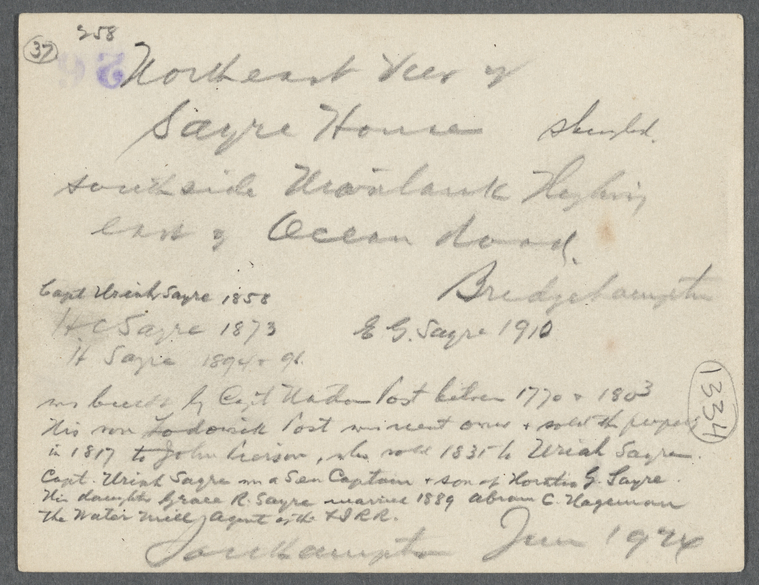 258
37
Northeast View of
Sayre House shingled.
south side Montauk Highway
east of Ocean Road.
Bridgehampton
Capt Uriah Sayre 1858
H C Sayre 1873 E G. Sayre 1910
H Sayre 1894 + 96.
was built by Capt Post between 1770 & 1803
His son Lodowick Post was next owner & sold the property
in 1817 to John Pierson, who sold 1835 to Uriah Sayre.
Capt. Uriah Sayre was a Sea Captain & son of Horatio G. Sayre.
His daughter Grace R. Sayre married 1889 Abram C. Hageman
the Water Mill Agent of the L I R R.
Southampton June 1924
1334